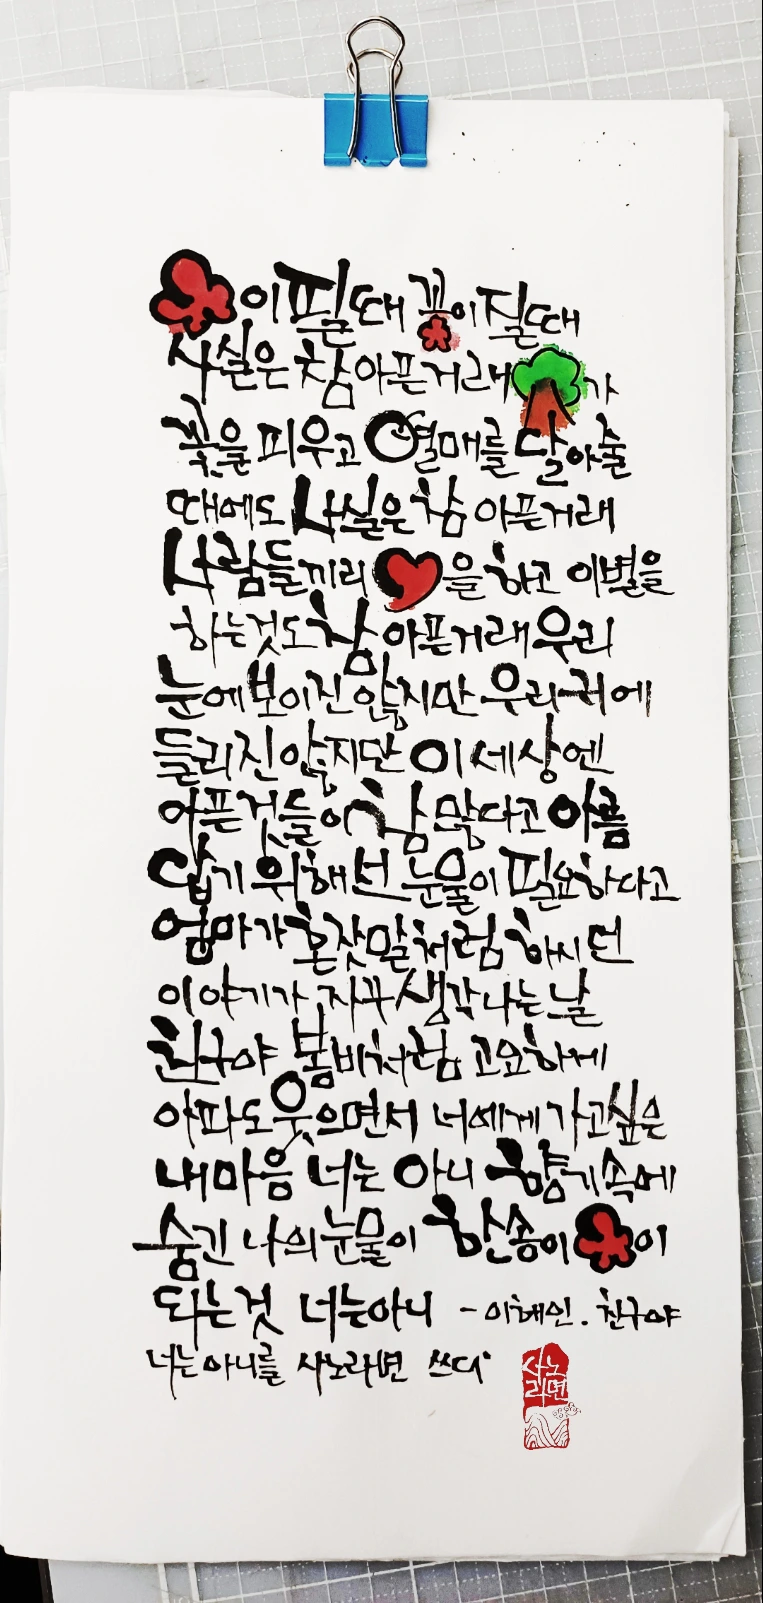 이필때 꽃이질때
사실은 참아픈거래 가
꽃을 피우고 열매를 달아줄
때에도 사실은 참 아픈거래
사람들끼리 을 하고 이별을
하는것도 참 아픈거래 우리
눈에 보이진 않지만 우리 귀에
들리진 않지만 이 세상엔
아픈것들이 참 많다고 아름
답기 위해선 눈물이 필요하다고
엄마가 혼잣말처럼 하시던
이야기가 자꾸 생각나는 날
친구야 봄비처럼 고요하게
아파도 웃으면서 너에게 가고싶은
내 마음 너는 아니 향기속에
숨긴 나의 눈물이 한송이 이
되는것 너는아니 - 이해인. 친구야
너는 아니를 사노라면 쓰다
사노
라면